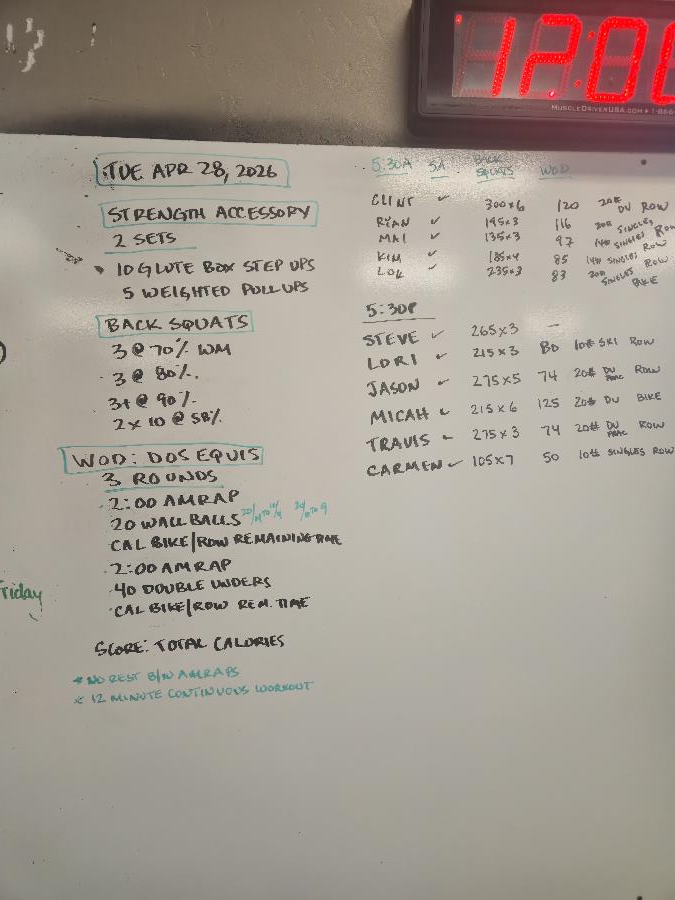 TUE APR 28, 2026
STRENGTH ACCESSORY
2 SETS
10 GLUTE BOX STEP UPS
5 WEIGHTED PULLUPS
BACK SQUATS
3 @ 70% WM
3 @ 80%
3+ @ 90%
2 x 10 @ 58%
WOD: DOS EQUIS
3 ROUNDS
2:00 AMRAP
20 WALL BALLS
CAL BIKE/ROW REMAINING TIME
2:00 AMRAP
40 DOUBLE UNDERS
CAL BIKE/ROW REM. TIME
SCORE: TOTAL CALORIES
* NO REST B/W AMRAPS
* 12 MINUTE CONTINUOUS WORKOUT
riday
12:00
MUSCLEDRIVERUSA.COM • 1-866
5:30A SA BACK SQUATS WOD
CLINT ✓ 300x6 120 20# DU ROW
RYAN ✓ 195x3 116 20# SINGLES ROW
MAI ✓ 135x3 97 14# SINGLES ROW
KIM ✓ 185x4 85 14# SINGLES ROW
LOU ✓ 235x3 83 20# SINGLES BIKE
5:30P
STEVE ✓ 265x3 —
LORI ✓ 215x3 80 10# SKI ROW
JASON ✓ 275x5 74 20# DU PRAC ROW
MICAH ✓ 215x6 125 20# DU BIKE
TRAVIS ✓ 275x3 74 20# DU PRAC ROW
CARMEN ✓ 105x7 50 10# SINGLES ROW